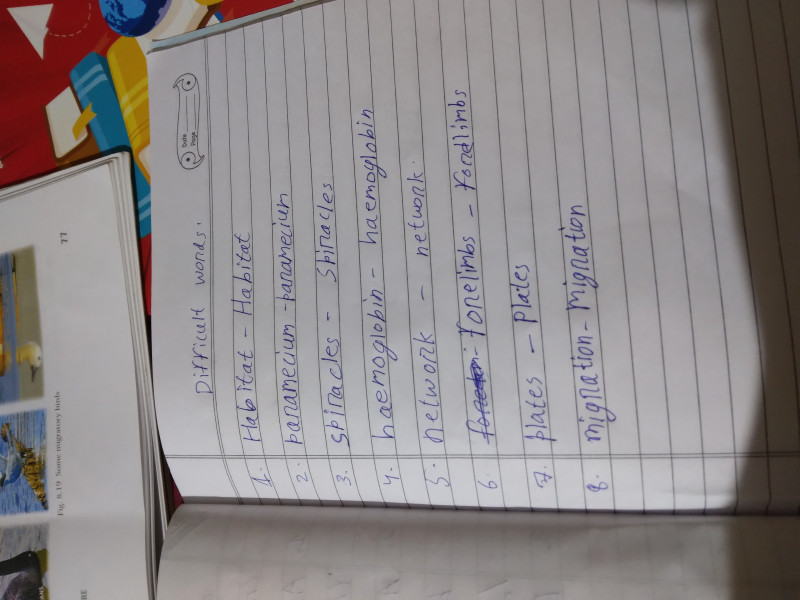 Date
Page
Difficult words.
1. Habitat - Habitat
2. paramecium - paramecium
3. spiracles - spiracles
4. haemoglobin - haemoglobin
5. network - network.
6. forelimbs - forelimbs
7. plates - Plates
8. migration - Migration
77
Fig. 8.19 Some migratory birds